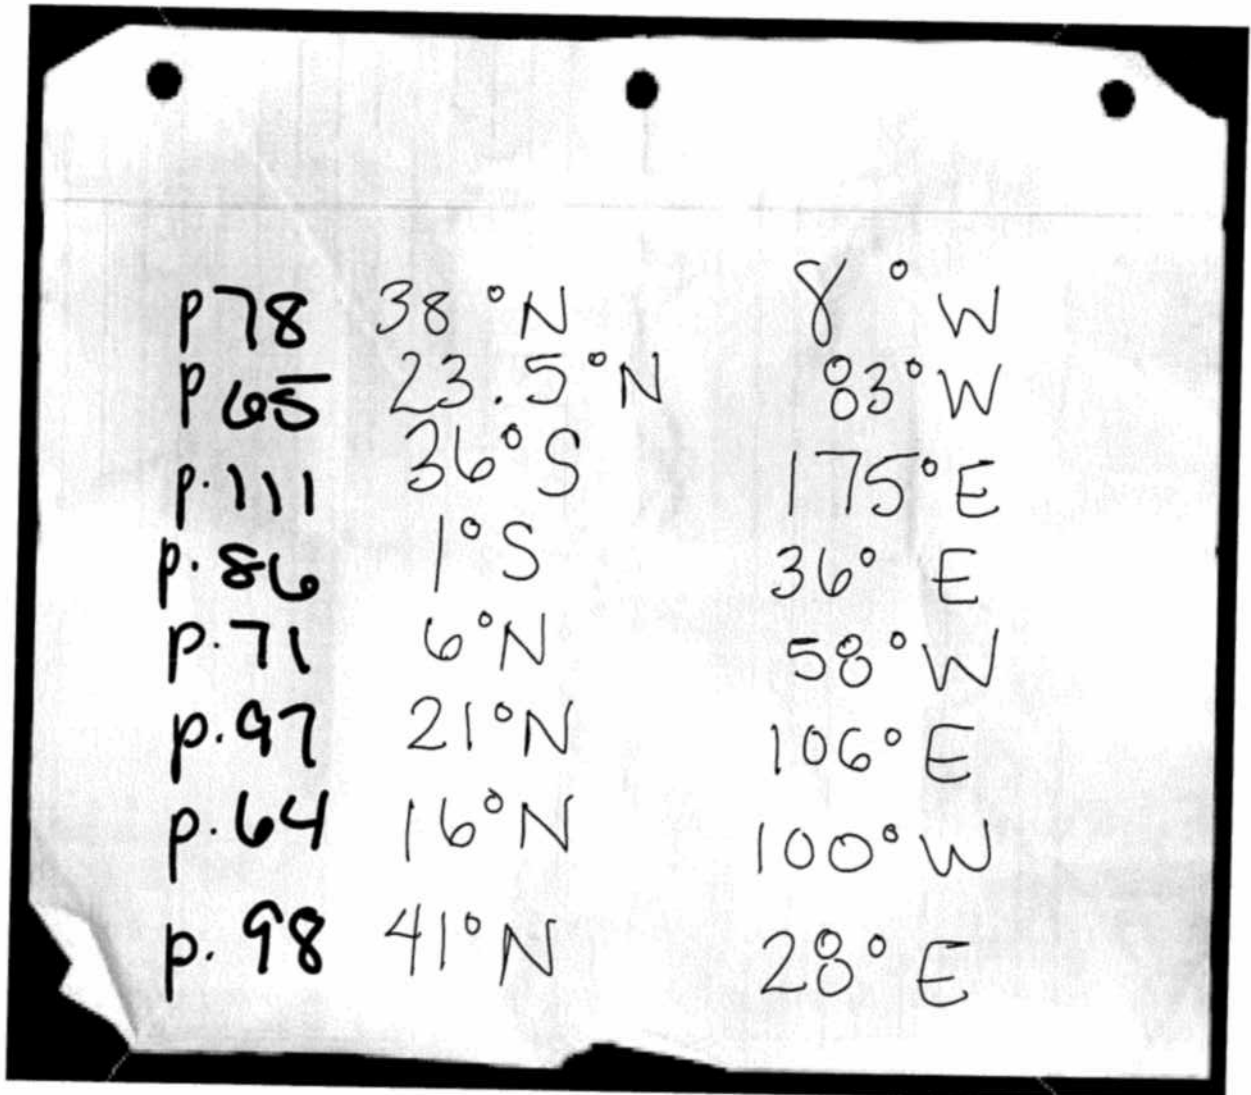 p 78 38°N 8°W
p 65 23.5°N 83°W
p. 111 36°S 175°E
p. 86 1°S 36°E
p. 71 6°N 58°W
p. 97 21°N 106°E
p. 64 16°N 100°W
p. 98 41°N 28°E